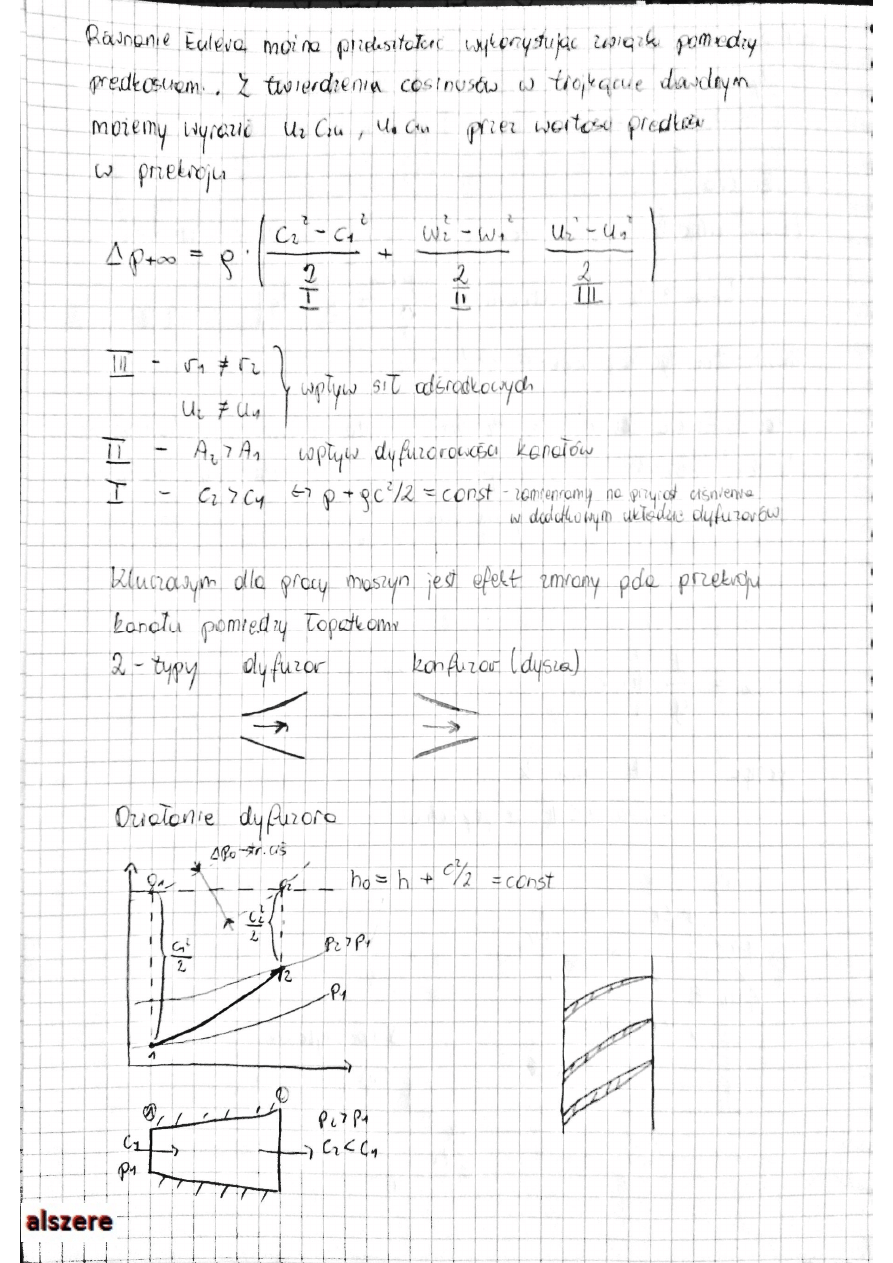 Równanie Eulera można przekształcić wykorzystując związki pomiędzy
prędkościam. Z twierdzenia cosinusów w trójkącie dowolnym
możemy wyrazić u₂ C₂u, u₁ C₁u przez wartości prędkości
w przekroju
Δp_t∞ = ρ · ( (c₂² - c₁²)/2 + (w₂² - w₁²)/2 (u₂² - u₁²)/2 )
I II III
III - r₁ ≠ r₂
u₂ ≠ u₁ } wpływ sił odśrodkowych
II - A₂ > A₁ wpływ dyfuzorowości kanałów
I - C₂ > C₁ ↔ p + ρc²/2 = const - zamieniamy na przyrost ciśnienia
w dodatkowym układzie dyfuzorów
Kluczowym dla pracy maszyn jest efekt zmiany pola przekroju
kanału pomiędzy łopatkami
2 - typy dyfuzor konfuzor (dysza)
Działanie dyfuzora
Δp₀ - str. ciś
h₀ = h + c²/2 = const
c₁²/2
c₂²/2
p₂ > p₁
2
p₁
1
p₂ > p₁
C₁
C₂ < C₁
p₁
alszere